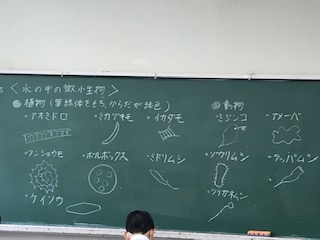 <水の中の微小生物>
●植物(葉緑体をもち、からだが緑色)
・アオミドロ ・ミカヅキモ ・イカダモ
・クンショウモ ・ボルボックス ・ミドリムシ
・ケイソウ
●動物
・ミジンコ ・アメーバ
・ゾウリムシ ・ラッパムシ
・ツリガネムシ